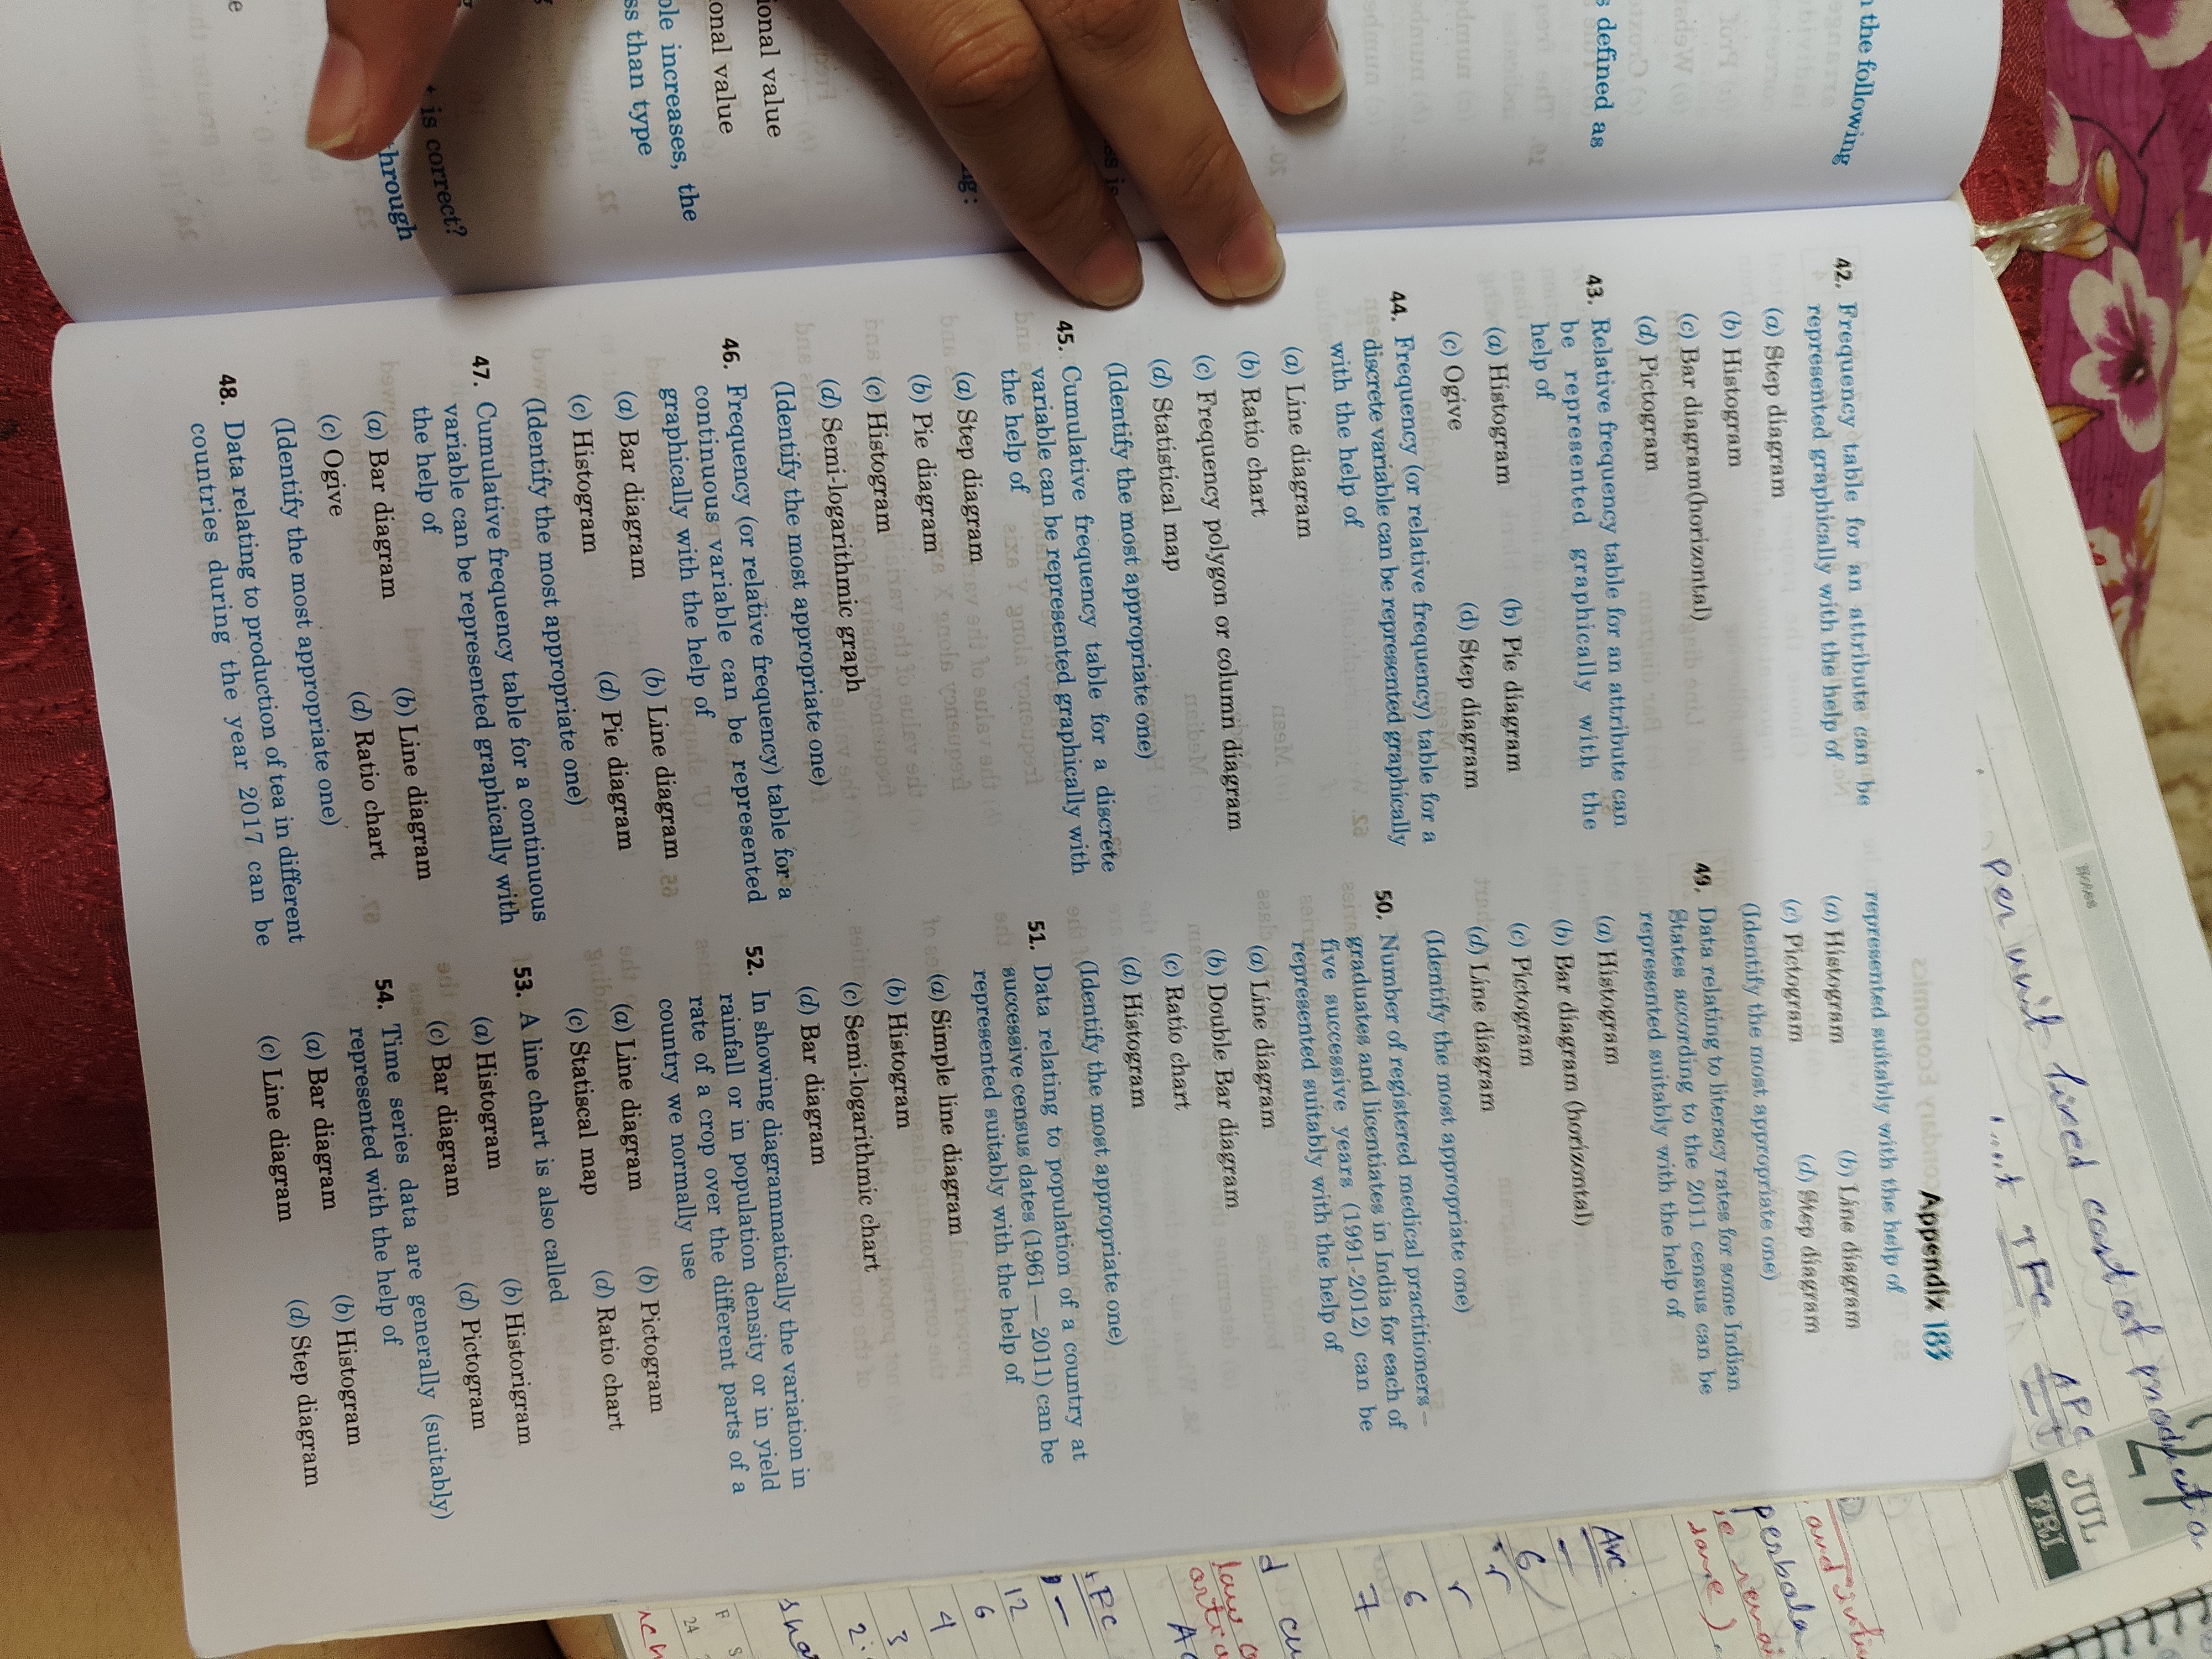 n the following
s defined as
ional value
onal value
ble increases, the
ss than type
is correct?
through
Appendix 183
42. Frequency table for an attribute can be
represented graphically with the help of
(a) Step diagram
(b) Histogram
(c) Bar diagram(horizontal)
(d) Pictogram
43. Relative frequency table for an attribute can
be represented graphically with the
help of
(a) Histogram (b) Pie diagram
(c) Ogive (d) Step diagram
44. Frequency (or relative frequency) table for a
discrete variable can be represented graphically
with the help of
(a) Line diagram
(b) Ratio chart
(c) Frequency polygon or column diagram
(d) Statistical map
(Identify the most appropriate one)
45. Cumulative frequency table for a discrete
variable can be represented graphically with
the help of
(a) Step diagram
(b) Pie diagram
(c) Histogram
(d) Semi-logarithmic graph
(Identify the most appropriate one)
46. Frequency (or relative frequency) table for a
continuous variable can be represented
graphically with the help of
(a) Bar diagram (b) Line diagram
(c) Histogram (d) Pie diagram
(Identify the most appropriate one)
47. Cumulative frequency table for a continuous
variable can be represented graphically with
the help of
(a) Bar diagram (b) Line diagram
(c) Ogive (d) Ratio chart
(Identify the most appropriate one)
48. Data relating to production of tea in different
countries during the year 2017 can be
represented suitably with the help of
(a) Histogram (b) Line diagram
(c) Pictogram (d) Step diagram
(Identify the most appropriate one)
49. Data relating to literacy rates for some Indian
States according to the 2011 census can be
represented suitably with the help of
(a) Histogram
(b) Bar diagram (horizontal)
(c) Pictogram
(d) Line diagram
(Identify the most appropriate one)
50. Number of registered medical practitioners –
graduates and licentiates in India for each of
five successive years (1991-2012) can be
represented suitably with the help of
(a) Line diagram
(b) Double Bar diagram
(c) Ratio chart
(d) Histogram
(Identify the most appropriate one)
51. Data relating to population of a country at
successive census dates (1961—2011) can be
represented suitably with the help of
(a) Simple line diagram
(b) Histogram
(c) Semi-logarithmic chart
(d) Bar diagram
52. In showing diagrammatically the variation in
rainfall or in population density or in yield
rate of a crop over the different parts of a
country we normally use
(a) Line diagram (b) Pictogram
(c) Statiscal map (d) Ratio chart
53. A line chart is also called
(a) Histogram (b) Historigram
(c) Bar diagram (d) Pictogram
54. Time series data are generally (suitably)
represented with the help of
(a) Bar diagram (b) Histogram
(c) Line diagram (d) Step diagram
Notes
per unit fixed cost of product
JUL
FRI